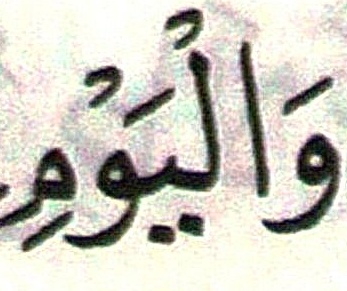 وَالْيَوْمِ